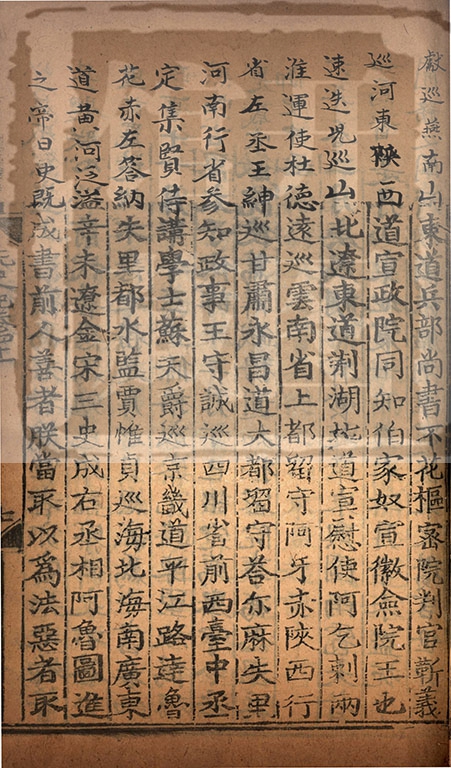 獻巡燕南山東道兵部尚書不花樞密院判官靳義
巡河東陝西道宣政院同知伯家奴宣徽僉院王也
速迭児巡山北遼東道荆湖北道宣慰使阿乞剌兩
淮運使杜德遠巡雲南省上都留守阿牙赤陝西行
省左丞王紳巡甘肅永昌道大都留守荅尓麻失里
河南行省參知政事王守誠巡四川省前西臺中丞
定集賢侍講學士蘇天爵巡京畿道平江路達魯
花赤左答納失里都水監賈惟貞巡海北海南廣東
道黄河泛溢辛未遼金宋三史成右丞相阿魯圖進
之帝曰史既成書前人善者朕當取以爲法惡者取